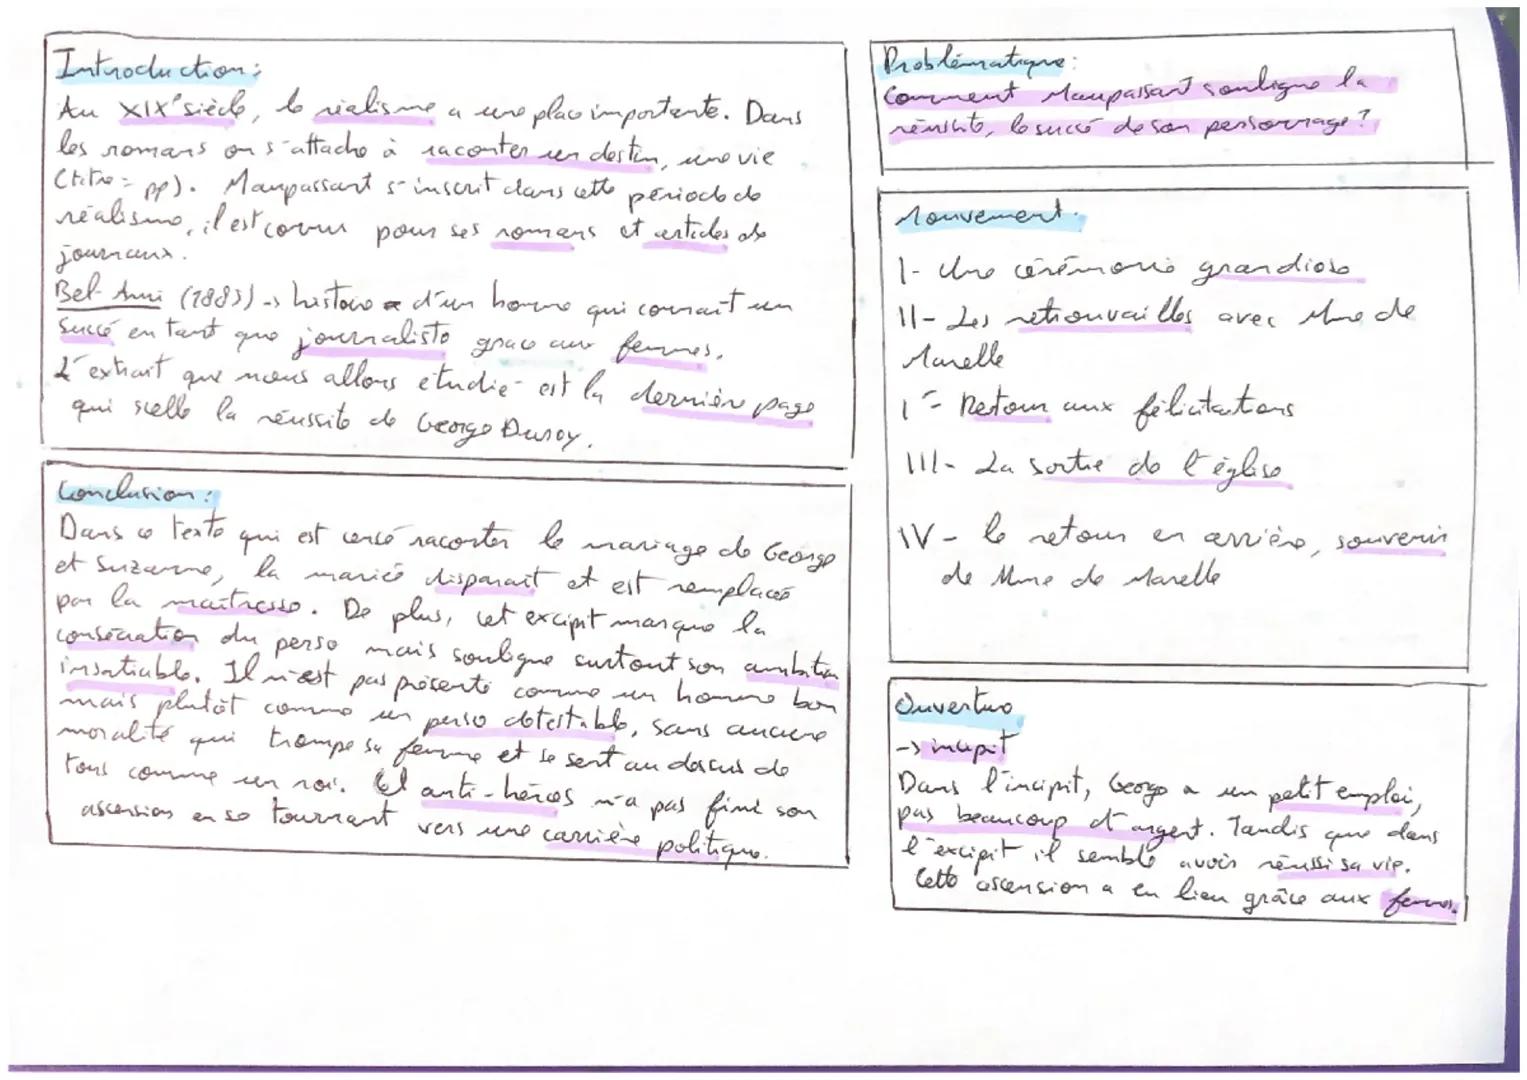 Introduction :
Au XIXe siècle, le réalisme a une place importante. Dans
les romans on s'attache à raconter un destin, une vie
(titre = pp). Maupassant s'inscrit dans cette période de
réalisme, il est connu pour ses romans et articles de
journaux.
Bel-Ami (1885) -> histoire d'un homme qui connait un
succé en tant que journaliste grace aux femmes.
L'extrait que nous allons étudié est la dernière page
qui scelle la réussite de George Duroy.
Conclusion :
Dans ce texte qui est censé raconter le mariage de George
et Suzanne, la mariée disparait et est remplacée
par la maitresse. De plus, cet excipit marque la
consécration du perso mais souligne surtout son ambition
insatiable. Il n'est pas présenté comme un homme bon
mais plutôt comme un perso detestable, sans aucune
moralité qui trompe sa femme et se sent au dessus de
tous comme un roi. Cet anti-héros n'a pas fini son
ascension en se tournant vers une carrière politique.
Problématique :
Comment Maupassant souligne la
réussite, le succé de son personnage ?
Mouvement :
I- Une cérémonie grandiose
II- Les retrouvailles avec Mme de
Marelle
I'- Retour aux félicitations
III- La sortie de l'église
IV- le retour en arrière, souvenir
de Mme de Marelle
Ouverture
-> incipit
Dans l'incipit, George a un petit emploi,
pas beaucoup d'argent. Tandis que dans
l'excipit il semble avoir réussi sa vie.
Cette ascension a eu lieu grâce aux femmes.